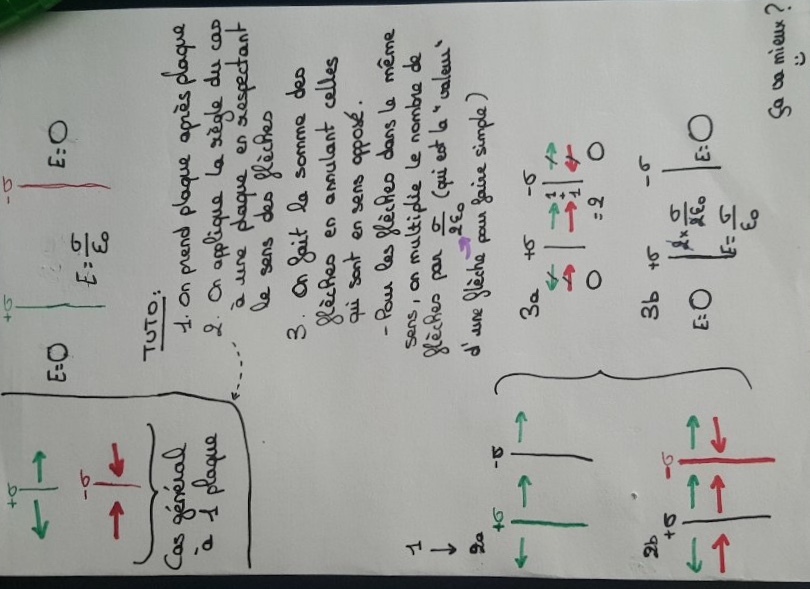 +σ
-σ
Cas général
à 1 plaque
+σ
-σ
E=O
E=σ/ε₀
E=O
TUTO:
1. On prend plaque après plaque
2. On applique la règle du cas
à une plaque en respectant
le sens des flèches
3. On fait la somme des
flèches en annulant celles
qui sont en sens opposé.
- Pour les flèches dans le même
sens, on multiplie le nombre de
flèches par σ/2ε₀ (qui est la "valeur"
d'une flèche pour faire simple)
1
2a
+σ
-σ
2b
+σ
-σ
3a
+σ
-σ
O
1+1=2
O
3b
+σ
-σ
E=O
2×σ/2ε₀
E=σ/ε₀
E=O
Ça va mieux?